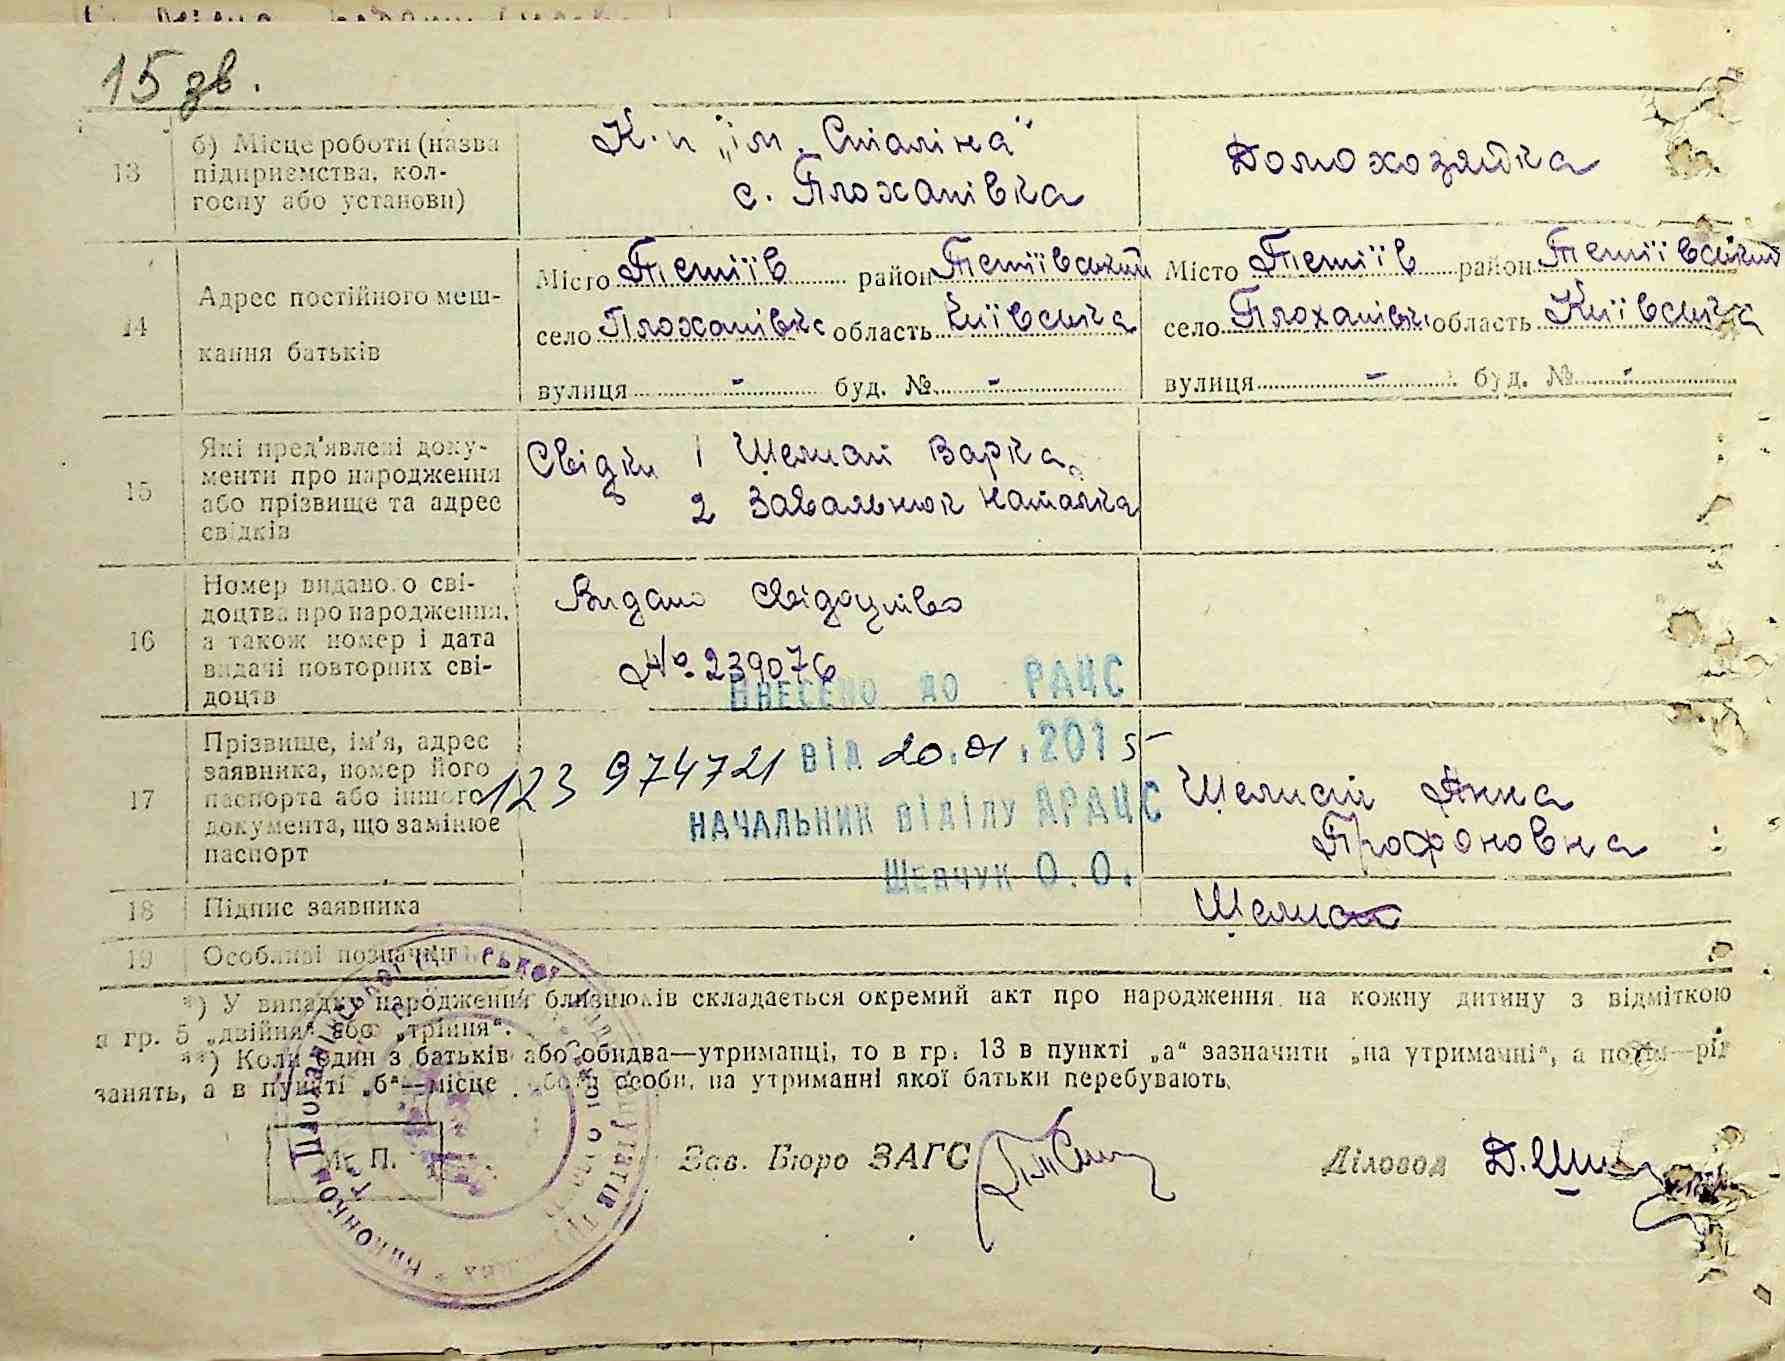 15 зв.
13
б) Місце роботи (назва
підприємства, кол-
госпу або установи)
К-п „ім. Сталіна“
с. Плоханівка
Домохозяйка
14
Адрес постійного меш-
кання батьків
Місто Тетіїв район Тетіївський
село Плоханівка область Київська
вулиця - буд. № -
Місто Тетіїв район Тетіївський
село Плоханівка область Київська
вулиця - буд. № -
15
Які пред'явлені доку-
менти про народження
або прізвище та адрес
свідків
Свідки 1 Шелмай Варка
2 Завальнюк Наталка
16
Номер виданого сві-
доцтва про народження,
а також номер і дата
видачі повторних сві-
доцтв
Видано свідоцтво
№ 239076
ВНЕСЕНО ДО РАЦС
17
Прізвище, ім'я, адрес
заявника, номер його
паспорта або іншого
документа, що замінює
паспорт
123 974721 ВІД 20.01.2015
НАЧАЛЬНИК ВІДІЛУ ДРАЦС
ШЕВЧУК О.О.
Шелмай Анна
Трофоновна
18
Підпис заявника
Шелмай
19
Особливі позначки
*) У випадку народження близнюків складається окремий акт про народження на кожну дитину з відміткою
в гр. 5 „двійня“ або „трійня“.
**) Коли один з батьків або обидва—утриманці, то в гр. 13 в пункті „а“ зазначити „на утриманні“, а потім—рід
занять, а в пункті „б“—місце роботи особи, на утриманні якої батьки перебувають.
М. П.
Виконком Плоханівської сільської депутатів
Зав. Бюро ЗАГС
Діловод